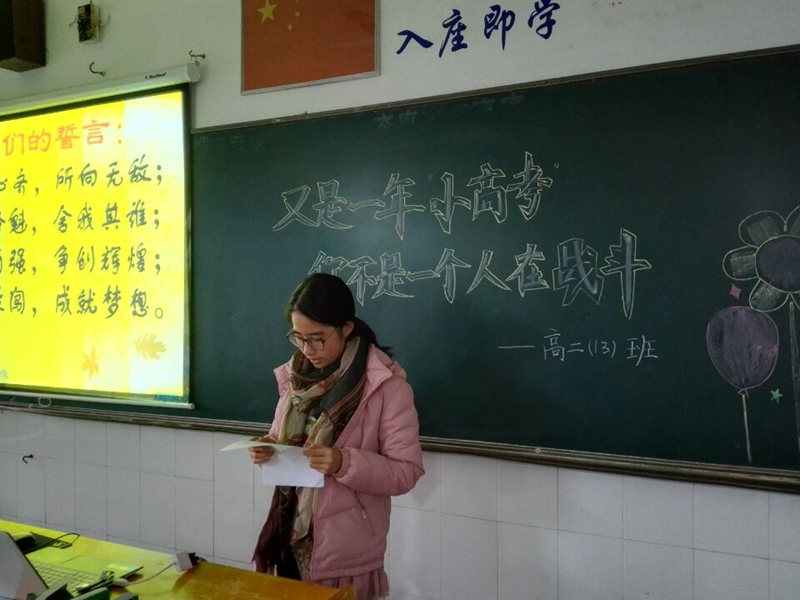 入座即学
们的誓言：
心齐，所向无敌；
夺魁，舍我其谁；
图强，争创辉煌；
敢闯，成就梦想。
又是一年“小高考”
你不是一个人在战斗
——高二（13）班